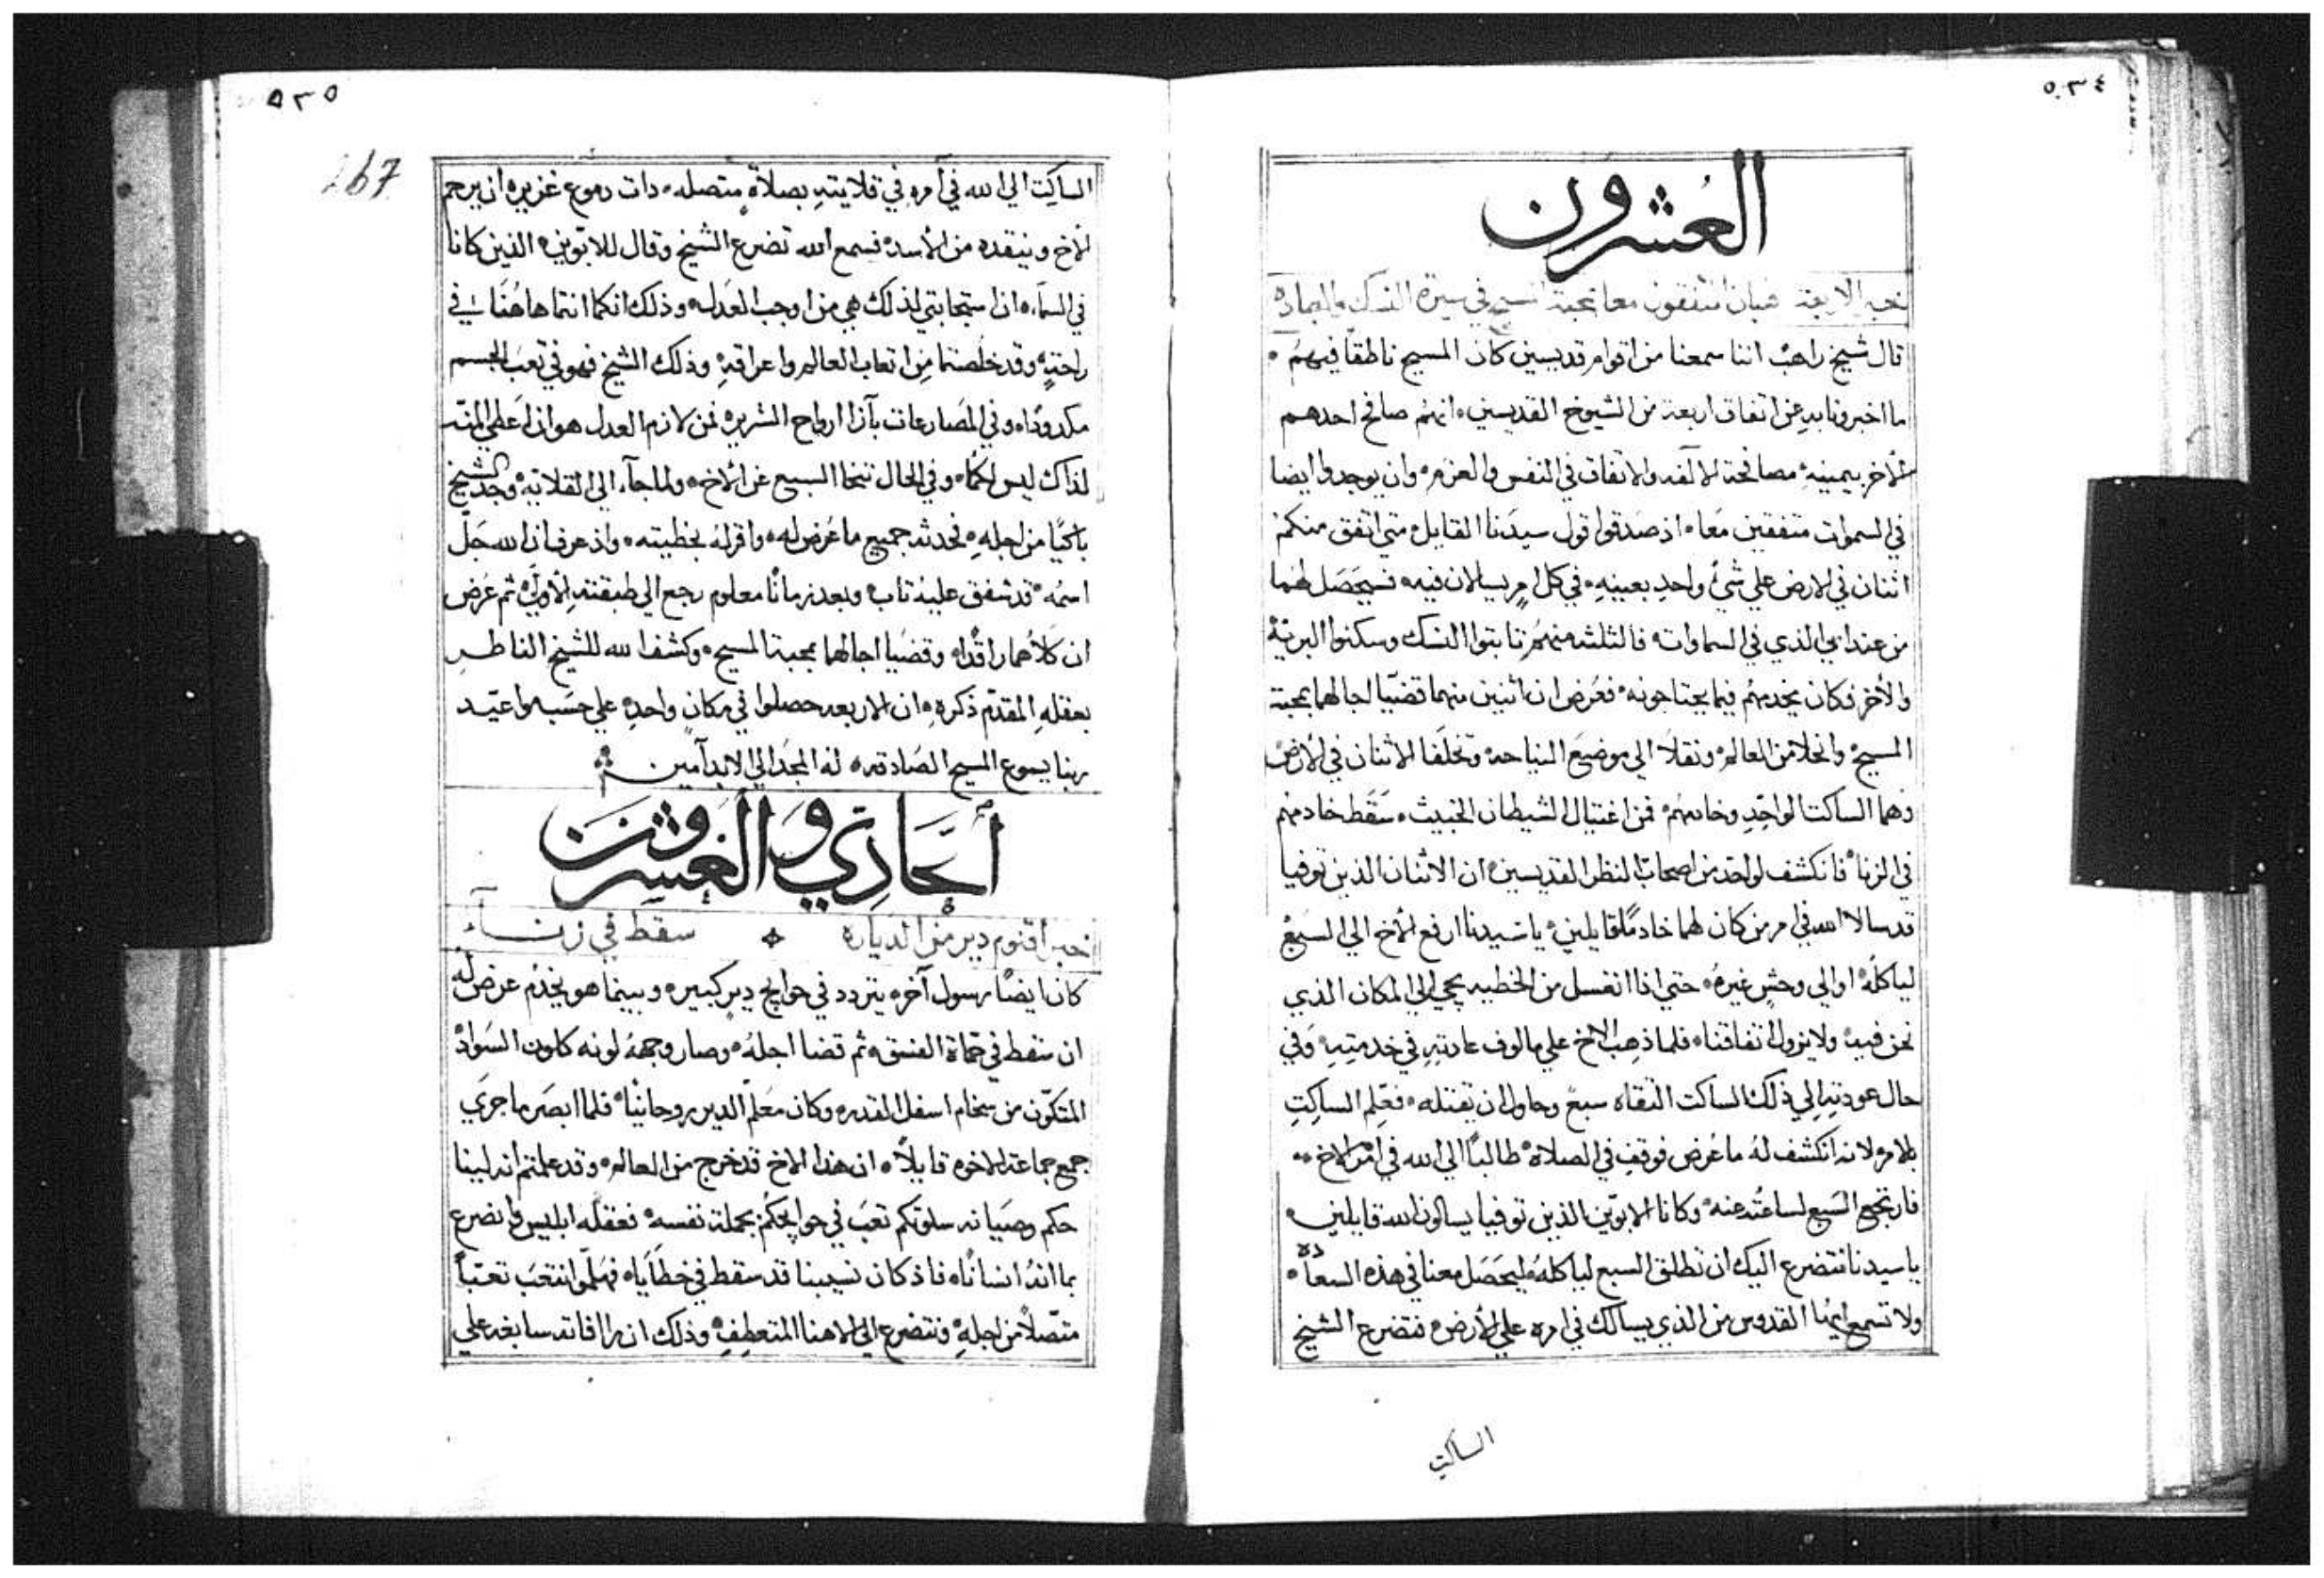 ٥٣٤
العُشرون
خبر الاربعة متفقون معا بمحبة المسيح في سيرة النسك والعباده
قال شيخ راهبٌ اننا سمعنا من اقوام قديسين كان المسيح ناطقًا فيهم ٠
ما اخبرونا به عن اتفاق اربعة من الشيوخ القديسين ٠ انهم صافح احدهم
الاخر بيمينهِ مصافحة الالفه والاتفاق في النفس والعزم ٠ وان يوجدوا ايضا
في السموات متفقين معًا ٠ اذ صدقوا قول سيدنا القايل متي اتفق منكم
اثنان في الارض علي شيٍ واحدٍ بعينهِ ٠ في كل امرٍ يسالان فيه فسيحصَل لهما
من عند ابي الذي في السماوات ٠ فالثلثه منهم ثابتوا النسك وسكنوا البريّة
والأخر فكان يخدمهم فيما يحتاجونه ٠ فعَرض ان اثنين منهما قضيا اجالهما بمحبة
المسيح ٠ وانحلا من العالم ٠ ونقلا الي موضع النياحه ٠ وتخلّفا الاثنان في الأرض
وهما الساكت الواحد وخادمهم ٠ فمن اغتيال الشيطان الخبيث ٠ سَقَط خادمهم
في الزنا ٠ فانكشف لواحد من اصحاب النظر القديسين ٠ ان الاثنان الذين توفيا
قد سالا الله في امر من كان لهما خادمًا قايلين ٠ يا سَيدنا ارفع الأخ الي السَبع
لياكلهُ ٠ او الي وحشٍ غيرهُ ٠ حتي اذا انغسل من الخطيه يجي الي المكان الذي
نحن فيه ٠ ولا يزول اتفاقنا ٠ فلما ذهب الاخ علي مالوف عادتهِ في خدمتهِ ٠ وفي
حال عودتهِ الي ذلك الساكت التقاه سبعٌ وحاول ان يقتله ٠ فعَلم الساكِت
بالامر لانه انكشف لهُ ما عُرض فوقف في الصلاة ٠ طالبًا الي الله في امر الاخ ٠٠
فارتجع السَبع لساعتُه عنه ٠ وكانا الابوين الذين توفيا يسالون الله قايلين ٠
يا سيدنا نتضرع اليك ان تطلق السبع لياكلهُ وليحَصَل معنا في هذه السعاده ٠
ولا تسمع ايها القدوس من الذي يسالك في امره علي الأرض ٠ فتضرع الشيخ
الساكت
٥٣٥
267
الساكِت الي الله في امره في قلايتهِ بصلاةٍ متصله ٠ دات دموع غزيره ان يرحم
الأخ وينقده من الأسد ٠ فسمع الله تضرع الشيخ وقال للابوين ٠ الذين كانا
في السمآء ٠ ان استجابتي لذلك هي من اوجب العَدل ٠ وذلك انكما انتما هاهُنا في
راحتهٍ وقد خلصتما مِن اتعاب العالم واعراقهِ وذلك الشيخ فهو في تعب الجسم
مكدودًا ٠ وفي المصارعات بآزا ارواح الشريره ٠ فمن لازم العدل هو ان اعطي المنّه
لذاك ليس لكما ٠ وفي الحال تنحا السبع عن الأخ ٠ ولما جآء الي القلاية ٠ وجد الشيخ
باكيًا من اجلهِ ٠ فحدثه جميع ما عُرض له ٠ واقر لهُ بخطيته ٠ واذ عرف ان الله جَلَّ
اسمُه ٠ قد شفق عليه تاب ٠ وبعد زمانًا معلوم رجع الي طبقته الأولي ٠ ثم عُرض
ان كلاهما رقدا ٠ وقضيا اجالهما بمحبة المسيح ٠ وكشف الله للشيخ الناظر
بعقلهِ المقدّم ذكره ٠ ان الاربعه حصلوا في مكان واحدٍ ٠ علي حسَب مواعيد
ربنا يسوع المسيح الصّادقه ٠ له المجد الي الابد آمين
أَلحَادِي وَ العِشرُونَ
خبر اقنوم دير من الدياره سقط في زنــاء
كان ايضًا رسول آخره يتردد في حوايج ديرٍ كبير ٠ وبينما هو يخدُم عرض لهُ
ان سقط في حَماة الفسق ٠ ثم قضا اجلهُ ٠ وصار وجههُ لونه كلون السَوادْ
المتكوّن من سخام اسفل القدر ٠ وكان معَلم الدير روحانيًا ٠ فلما ابصَر ما جرَي
جمع جماعة الاخوه قايلاً ٠ ان هذا الاخ قد خرج من العالم ٠ وقد علمتم انه لبينا
تعبَ في حوايجكم بجملة نفسه ٠ فعقله ابليس
بما انهُ انسانًا ٠ فاذ كان نسيبنا قد سقط في خطايَاه ٠ فهَلمّوا نتعَب تعبًا
متصّلاً من اجلهِ ٠ ونتضرع الي الاهنا المتعطِف ٠ وذلك ان رافاته سابغه علي